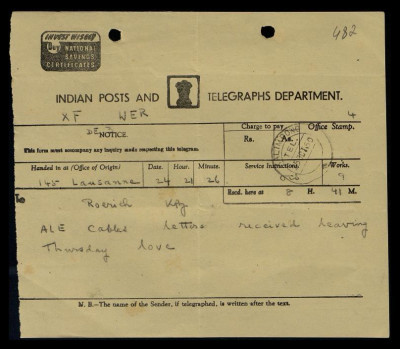 482
INVEST WISELY
Buy NATIONAL
SAVINGS
CERTIFICATES.
INDIAN POSTS AND TELEGRAPHS DEPARTMENT.
XF WER 4
NOTICE.
This form must accompany any inquiry made respecting this telegram.
Charge to pay Office Stamp.
Rs. As.
Handed in at (Office of Origin) Date. Hour. Minute. Service Instructions. Words.
145 Lausanne 24 21 26 9
Recd. here at 8 H. 41 M.
To
Roerich Kpg
ALE Cables letters received leaving
Thursday love
N. B.—The name of the Sender, if telegraphed, is written after the text.